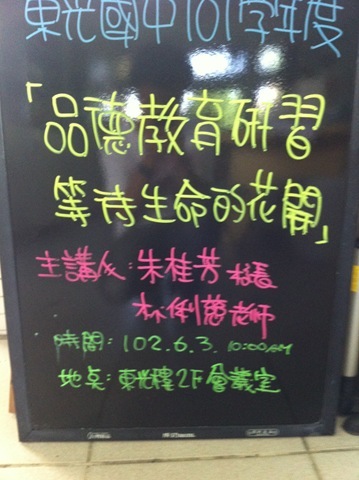 東光國中101學年度
「品德教育研習
等待生命的花開」
主講人:朱桂芳 校長
林俐慈老師
時間:102.6.3. 10:00AM
地点:東光樓2F會議室